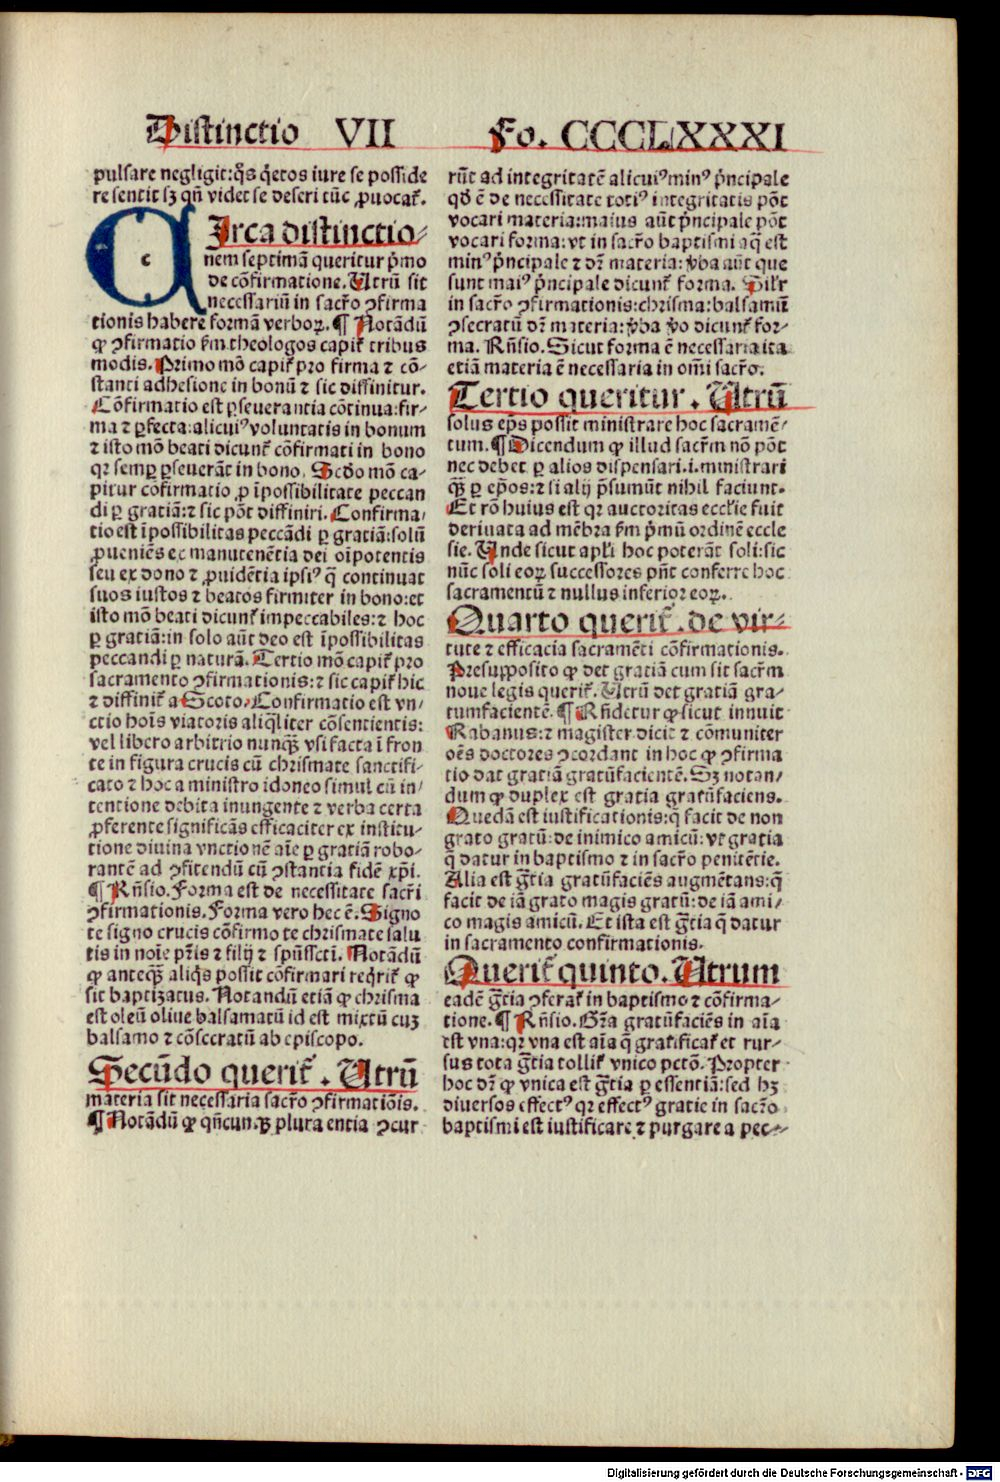 Distinctio VII Fo. CCCCLXXXXI
pulsare negligit: q̄s q̄etos iure se posside
re sentit sȝ qn̄ videt se deseri tūc ꝓuocat̄.
c
Irca distinctio⸗
nem septimā queritur p̄mo
de cōfirmatione. Utrū sit
necessariū in sacr̄o ꝯfirma
tionis habere formā verboꝝ. ¶ Notādū
ꝙ ꝯfirmatio ẜm theologos capit̄ tribus
modis. Primo mō capit̄ pro firma ⁊ cō⸗
stanti adhesione in bonū ⁊ sic diffinitur.
Cōfirmatio est ꝑseuerantia cōtinua: fir⸗
ma ⁊ ꝑfecta: alicuiꝰ voluntatis in bonum
⁊ isto mō beati dicunt̄ cōfirmati in bono
qꝛ semꝑ ꝑseuerāt in bono. Scd̄o mō ca⸗
pitur cōfirmatio ꝓ īpossibilitate peccan
di ꝑ gratiā: ⁊ sic pōt diffiniri. Confirma⸗
tio est īpossibilitas peccādi ꝑ gratiā: solū
ꝓueniēs ex manutenētia dei oīpotentis
seu ex dono ⁊ ꝓuidētia ipsiꝰ q̄ continuat
suos iustos ⁊ beatos firmiter in bono: et
isto mō beati dicunt̄ impeccabiles: ⁊ hoc
ꝑ gratiā: in solo aūt deo est īpossibilitas
peccandi ꝑ naturā. Tertio mō capit̄ pro
sacramento ꝯfirmationis: ⁊ sic capit̄ hic
⁊ diffinit̄ a Scoto. Confirmatio est vn⸗
ctio hoīs viatoris aliq̄liter cōsentientis:
vel libero arbitrio nunqꝫ vsi facta ī fron
te in figura crucis cū chrismate sanctifi⸗
cato ⁊ hoc a ministro idoneo simul cū in⸗
tentione debita inungente ⁊ verba certa
ꝓferente significās efficaciter ex institu⸗
tione diuina vnctionē aīe ꝑ gratiā robo⸗
rantē ad ꝯfitendū cū ꝯstantia fidē xp̄i.
¶ Rn̄sio. Forma est de necessitate sacr̄i
ꝯfirmationis. Forma vero hec ē. Signo
te signo crucis cōfirmo te chrismate salu
tis in noīe pr̄is ⁊ filij ⁊ spūssctī. Notādū
ꝙ anteqꝫ aliq̄s possit cōfirmari req̄rit̄ ꝙ
sit baptizatus. Notandū etiā ꝙ chrisma
est oleū oliue balsamatū id est mixtū cuȝ
balsamo ⁊ cōsecratū ab episcopo.
Secūdo querit̄. Utrū
materia sit necessaria sacr̄o ꝯfirmatiōis.
¶ Notādū ꝙ qn̄cunqꝫ plura entia ꝯcur
rūt ad integritatē alicuiꝰ minꝰ p̄ncipale
qd̄ ē de necessitate totiꝰ integritatis pōt
vocari materia: maius aūt p̄ncipale pōt
vocari forma: vt in sacr̄o baptismi aq̄ est
minꝰ p̄ncipale ⁊ dr̄ materia: v̄ba aūt que
sunt maiꝰ p̄ncipale dicunt̄ forma. Sil̄r
in sacr̄o ꝯfirmationis: chrisma: balsamū
ꝯsecratū dr̄ materia: v̄ba v̄o dicunt̄ for⸗
ma. Rn̄sio. Sicut forma ē necessaria ita
etiā materia ē necessaria in om̄i sacr̄o.
Tertio queritur. Utrū
solus ep̄s possit ministrare hoc sacramē⸗
tum. ¶ Dicendum ꝙ illud sacr̄m nō pōt
nec debet ꝑ alios dispensari .i. ministrari
qꝫ ꝑ ep̄os: ⁊ si alij p̄sumūt nihil faciunt.
Et rō huius est qꝛ auctoritas eccl̄ie fuit
deriuata ad mēbra ẜm p̄mū ordinē eccle
sie. Unde sicut apl̄i hoc poterāt soli: sic
nūc soli eoꝝ successores pn̄t conferre hoc
sacramentū ⁊ nullus inferior eoꝝ.
Quarto querit̄. de vir⸗
tute ⁊ efficacia sacramēti cōfirmationis.
Presupposito ꝙ det gratiā cum sit sacr̄m
noue legis querit̄. Utrū det gratiā gra⸗
tumfacientē. ¶ Rn̄detur ꝙ sicut innuit
Rabanus: ⁊ magister dicit ⁊ cōmuniter
oēs doctores ꝯcordant in hoc ꝙ ꝯfirma
tio dat gratiā gratūfacientē. Sȝ notan⸗
dum ꝙ duplex est gratia gratūfaciens.
Quedā est iustificationis: q̄ facit de non
grato gratū: de inimico amicū: vt gratia
q̄ datur in baptismo ⁊ in sacr̄o penitētie.
Alia est gr̄tia gratūfaciēs augmētans: q̄
facit de iā grato magis gratū: de iā ami⸗
co magis amicū. Et ista est gr̄tia q̄ datur
in sacramento confirmationis.
Querit̄ quinto. Utrum
eadē gr̄tia ꝯferat̄ in baptismo ⁊ cōfirma⸗
tione. ¶ Rn̄sio. Gr̄a gratūfaciēs in aīa
est vna: qꝛ vna est aīa q̄ gratificat̄ et rur⸗
sus tota gr̄tia tollit̄ vnico pctō. Propter
hoc dr̄ ꝙ vnica est gr̄tia ꝑ essentiā: sed hȝ
diuersos effectꝰ qꝛ effectꝰ gratie in sacr̄o
baptismi est iustificare ⁊ purgare a pec⸗
Digitalisierung gefördert durch die Deutsche Forschungsgemeinschaft - DFG